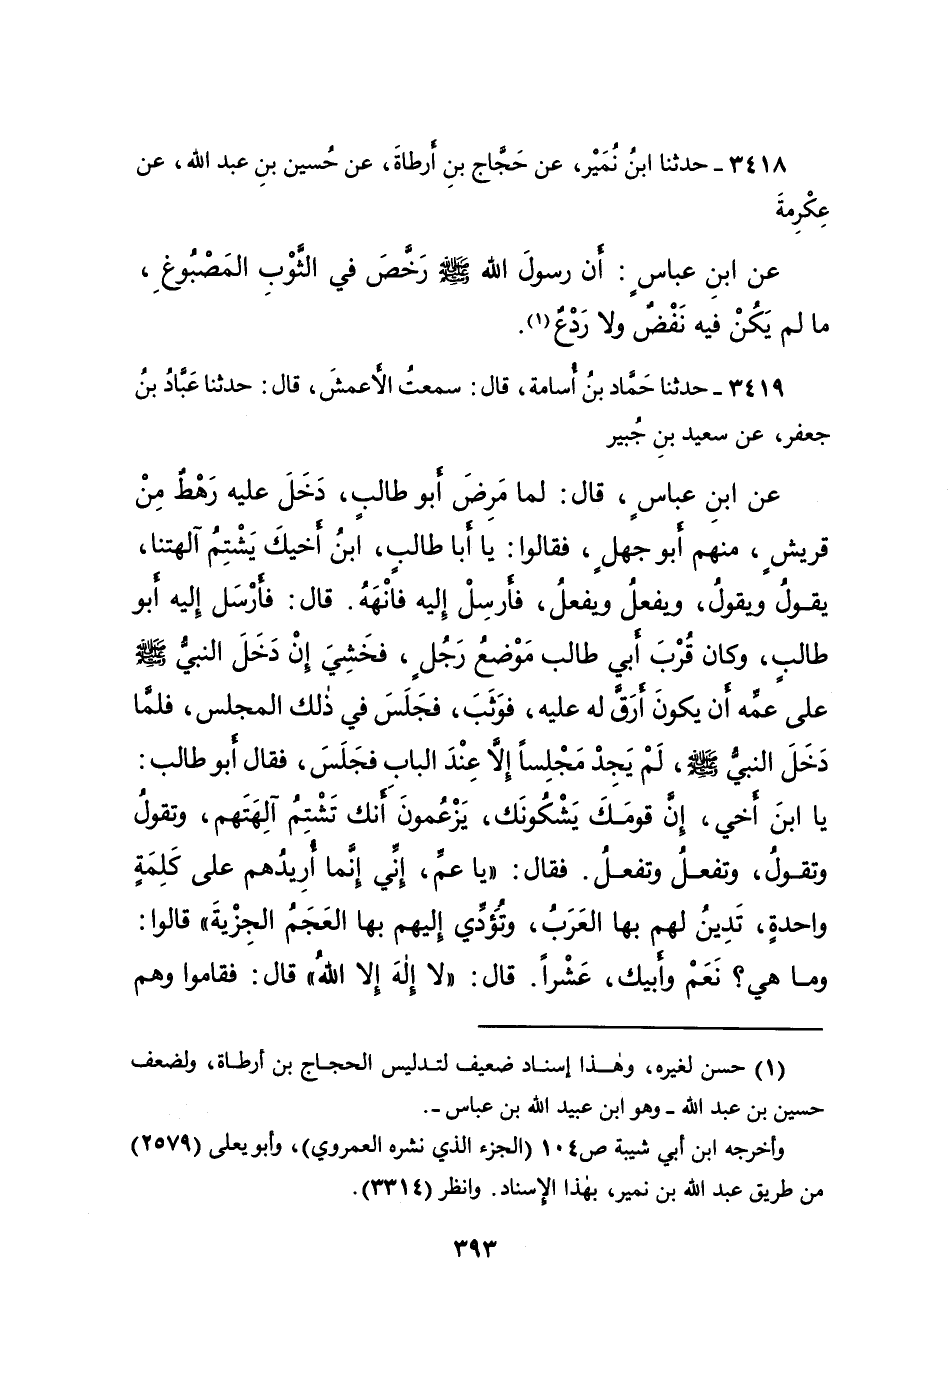 ٣٤١٨ ـ حدثنا ابنُ نُمَيْر، عن حَجَّاج بنِ أَرطاةَ، عن حُسين بنِ عبد الله، عن
عِكْرِمةَ
عن ابنِ عباسٍ: أَن رسولَ الله ﷺ رَخَّصَ في الثَّوْبِ المَصْبُوغِ،
ما لم يَكُنْ فيه نَفْضٌ ولا رَدْعٌ(١).
٣٤١٩ ـ حدثنا حَمَّاد بنُ أُسامة، قال: سمعتُ الأَعمشَ، قال: حدثنا عَبَّادُ بنُ
جعفر، عن سعيد بنِ جُبير
عن ابنِ عباسٍ، قال: لما مَرِضَ أَبو طالبٍ، دَخَلَ عليه رَهْطٌ مِنْ
قريشٍ، منهم أَبو جهلٍ، فقالوا: يا أَبا طالبٍ، ابنُ أَخيكَ يَشْتِمُ آلهتنا،
يقـولُ ويقولُ، ويفعلُ ويفعلُ، فأَرسِلْ إليه فانْهَهُ. قال: فأَرْسَل إليه أَبو
طالبٍ، وكان قُرْبَ أَبي طالب مَوْضعُ رَجُلٍ، فخَشِيَ إنْ دَخَلَ النبيُّ ﷺ
على عمِّه أَن يكونَ أَرَقَّ له عليه، فوَثَبَ، فجَلَسَ في ذٰلك المجلس، فلمَّا
دَخَلَ النبيُّ ﷺ، لَمْ يَجِدْ مَجْلِساً إلَّا عِنْدَ البابِ فجَلَسَ، فقال أَبو طالب:
يا ابنَ أَخي، إنَّ قومَـكَ يَشْكُونَك، يَزْعُمونَ أَنك تَشْتِمُ آلِهَتَهم، وتقولُ
وتقـولُ، وتفعـلُ وتفعـلُ. فقال: «يا عمِّ، إنِّي إنَّما أُرِيدُهم على كَلِمَةٍ
واحدةٍ، تَدِينُ لهم بها العَرَبُ، وتُؤَدِّي إليهم بها العَجَمُ الجِزْيةَ» قالوا:
ومـا هي؟ نَعَمْ وأَبيك، عَشْراً. قال: «لا إلٰهَ إلا اللهُ» قال: فقاموا وهم
(١) حسن لغيره، وهٰـذا إسنـاد ضعيف لتـدليس الحجـاج بن أرطـاة، ولضعف
حسين بن عبد الله ـ وهو ابن عبيد الله بن عباس ـ.
وأخرجه ابن أبي شيبة ص١٠٤ (الجزء الذي نشره العمروي)، وأبو يعلى (٢٥٧٩)
من طريق عبد الله بن نمير، بهٰذا الإسناد. وانظر (٣٣١٤).
٣٩٣